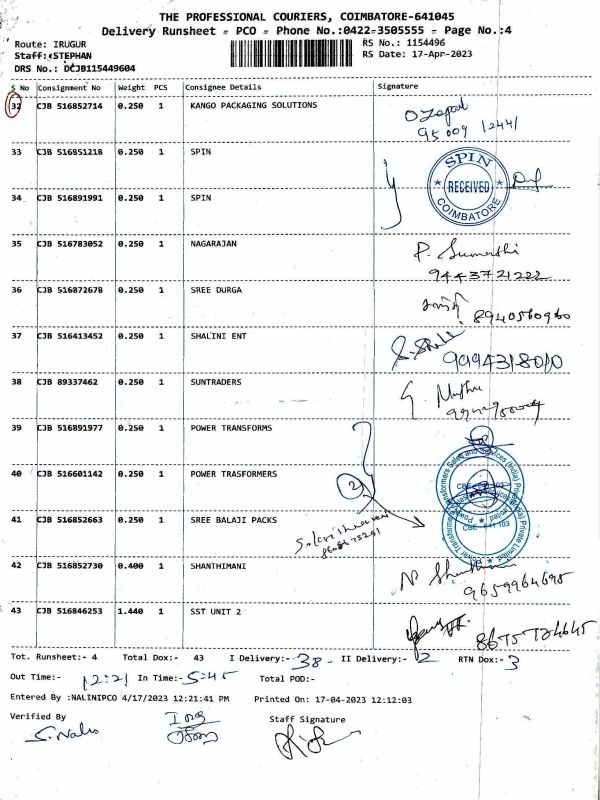 THE PROFESSIONAL COURIERS, COIMBATORE-641045
Delivery Runsheet = PCO = Phone No.:0422=3505555 = Page No.:4
Route: IRUGUR
RS No.: 1154496
Staff: STEPHAN
RS Date: 17-Apr-2023
DRS No.: DCJB115449604
S No Consignment No Weight PCS Consignee Details Signature
32 CJB 516852714 0.250 1 KANGO PACKAGING SOLUTIONS
95009 12441
33 CJB 516851218 0.250 1 SPIN
34 CJB 516891991 0.250 1 SPIN
SPIN
RECEIVED
COIMBATORE
35 CJB 516783052 0.250 1 NAGARAJAN P. Sumathi
9443721222
36 CJB 516872678 0.250 1 SREE DURGA
8940560960
37 CJB 516413452 0.250 1 SHALINI ENT
9994318010
38 CJB 89337462 0.250 1 SUNTRADERS
39 CJB 516891977 0.250 1 POWER TRANSFORMS
40 CJB 516601142 0.250 1 POWER TRASFORMERS
2
41 CJB 516852663 0.250 1 SREE BALAJI PACKS
42 CJB 516852730 0.400 1 SHANTHIMANI
9659964695
43 CJB 516846253 1.440 1 SST UNIT 2
8675724645
Tot. Runsheet:- 4 Total Dox:- 43 I Delivery:- 38 II Delivery:- 2 RTN Dox:- 3
Out Time:- 12:21 In Time:- 5:45 Total POD:-
Entered By :NALINIPCO 4/17/2023 12:21:41 PM Printed On: 17-04-2023 12:12:03
Verified By Staff Signature